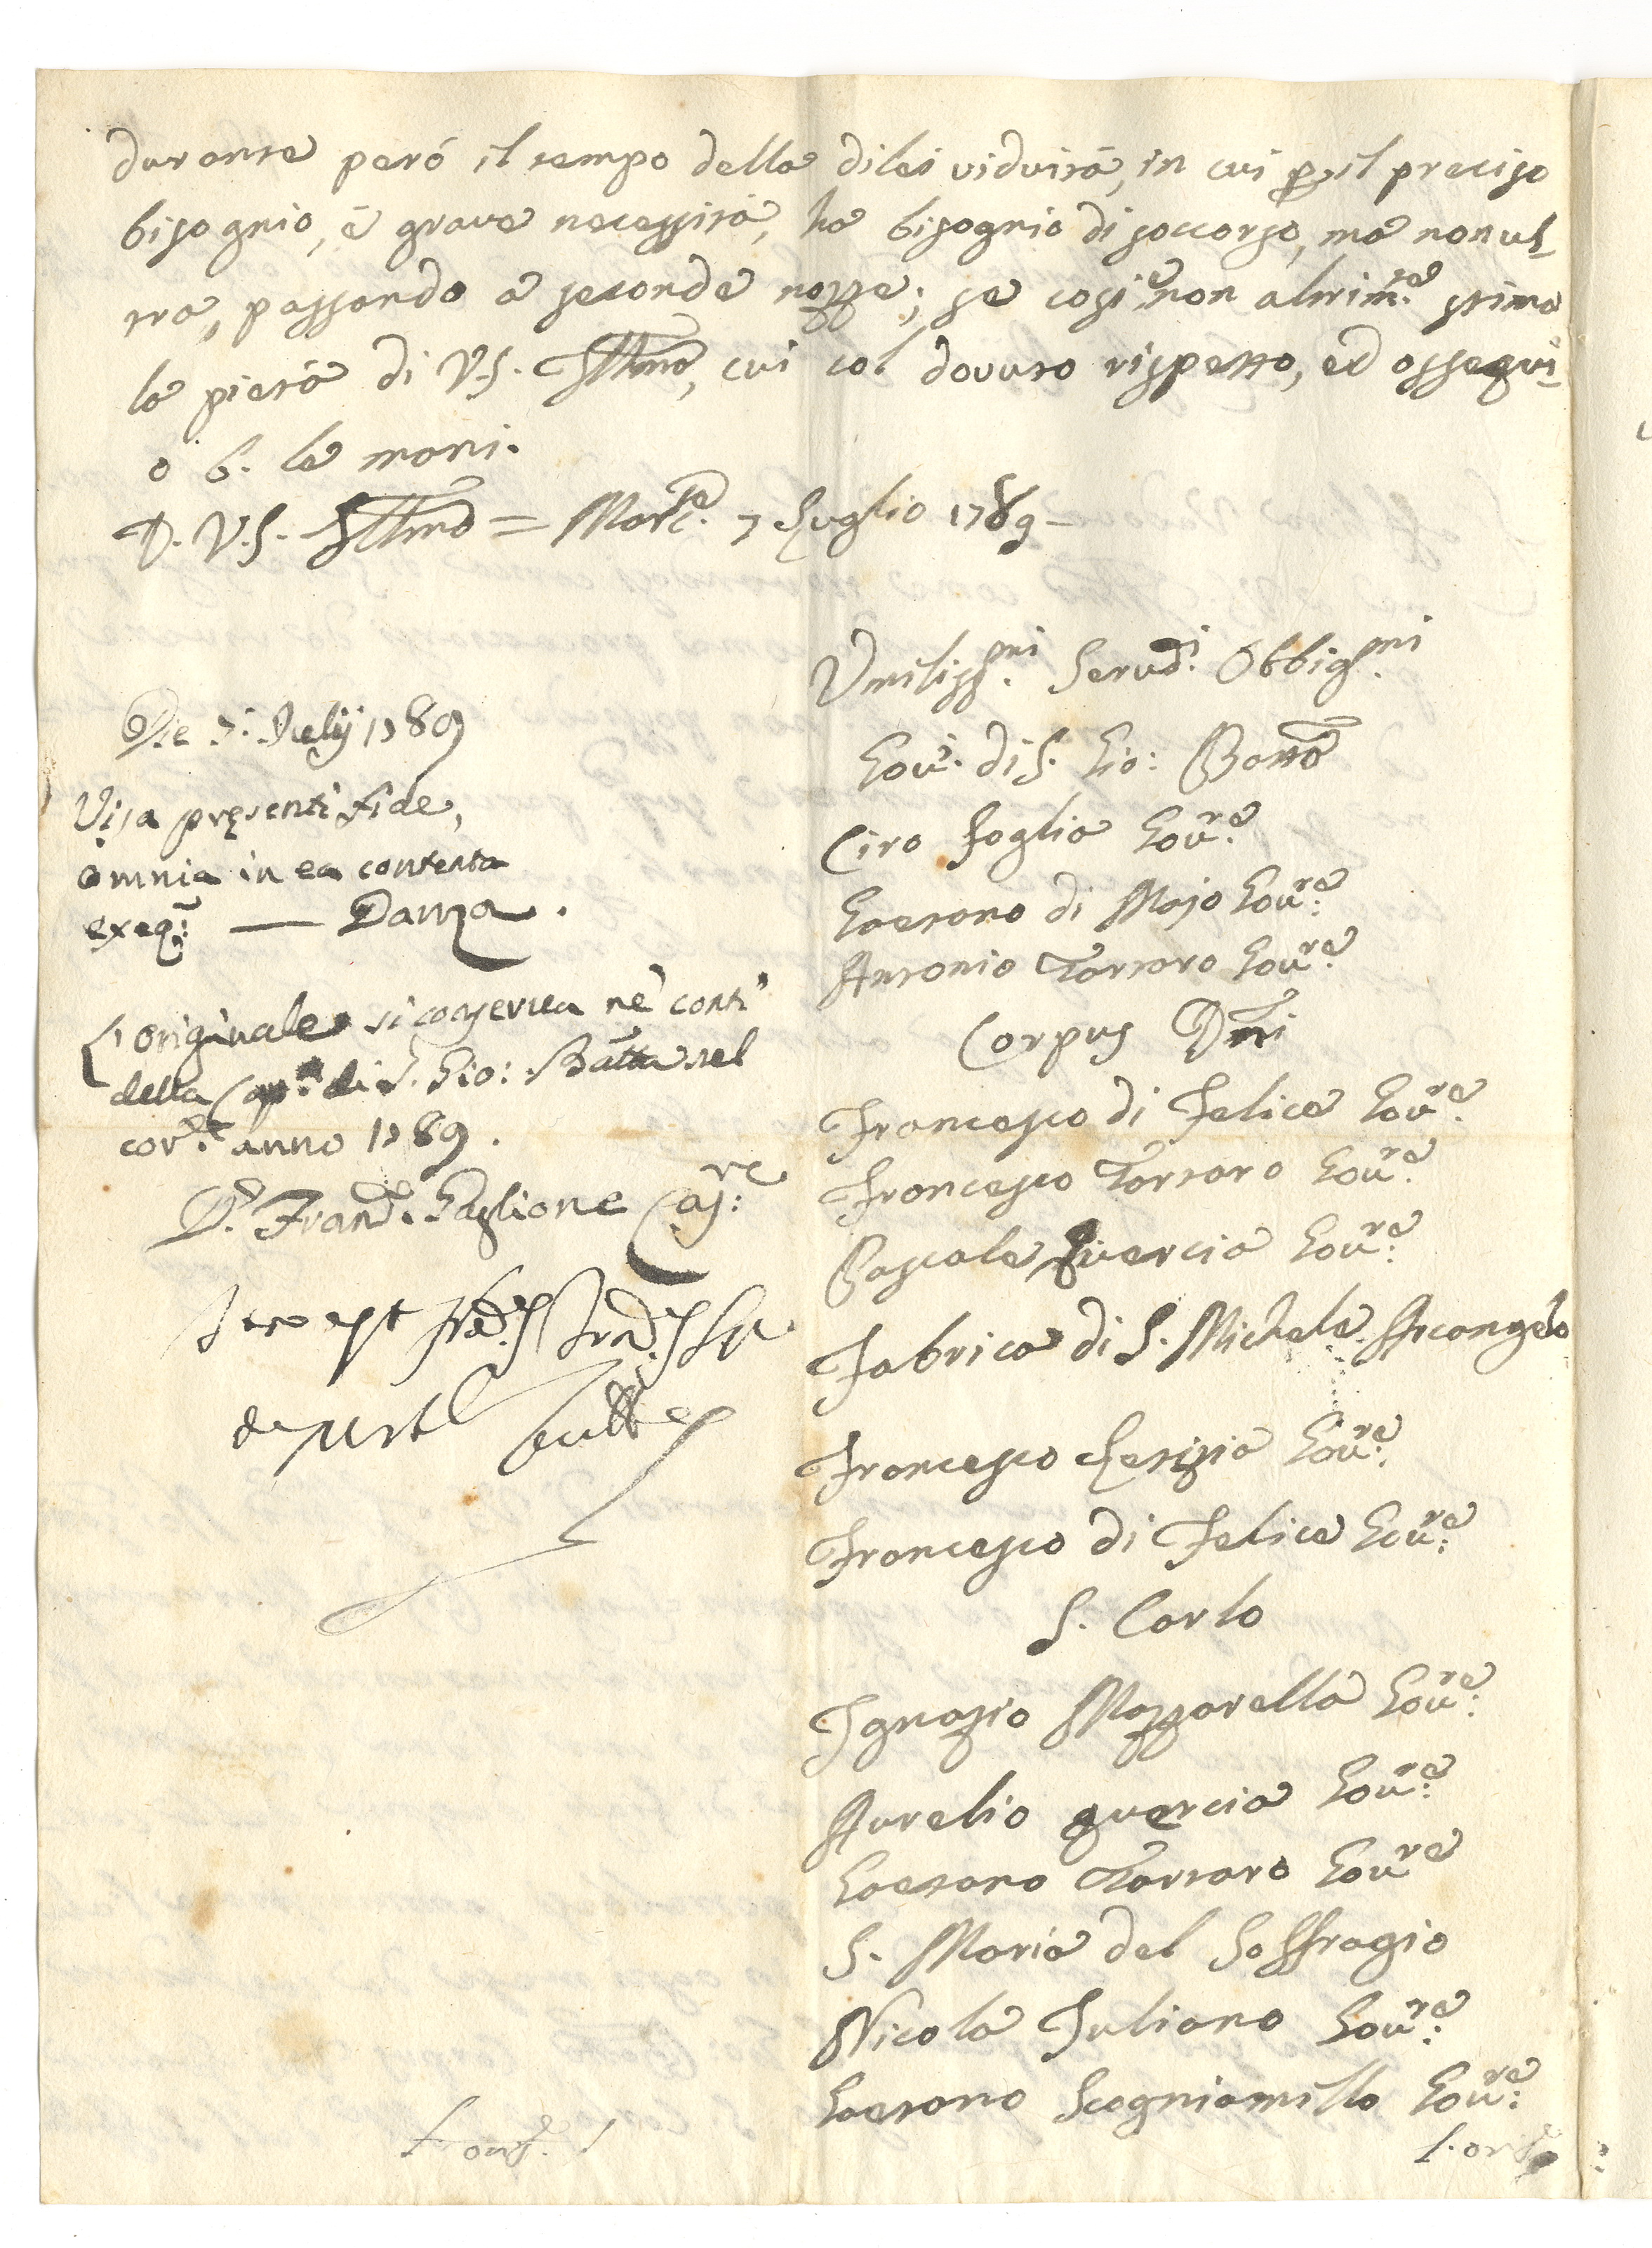 durante però il tempo della dilei viduità, in cui p. il preciso
bisognio, è grave necessità, ha bisognio di soccorso, ma non ul-
tra, passando a seconde nozze; se così e non altrim.te stima
la pietà di V.S. Illma, cui col dovuto rispetto, ed ossequi-
o b. le mani.
D. V.S. Illma = 7 Luglio 1789 -
Umiliss.mi Servd.i Obbigh.mi
Gov.i di S. Gio: Batta
Ciro Foglia Gov.re
Gaetano di Majo Gov.re
Antonio Tortaro Gov.re
Corpus Dni
Francesco di Felice Gov.re
Francesco Tortaro Gov.re
Pascale Quercia Gov.re
Fabrica di S. Michele Arcangelo
Francesco Letizia Gov.re
Francesco di Felice Gov.re
S. Carlo
Ignazio Mazzarella Gov.re
Aurelio quercia Gov.re
Gaetano Tortaro Gov.re
S. Maria del Soffragio
Nicola Juliano Gov.re
Gaetano Scogniamillo Gov.re
Die 7: Julij 1789
Visa presenti fide,
omnia in ea contenta
exeq: — Danza.
L'originale si conserva ne' conti
della Cap.a di S. Gio: Batta nel
cor.te anno 1789.
D. Fran.co Paglione Caj:re